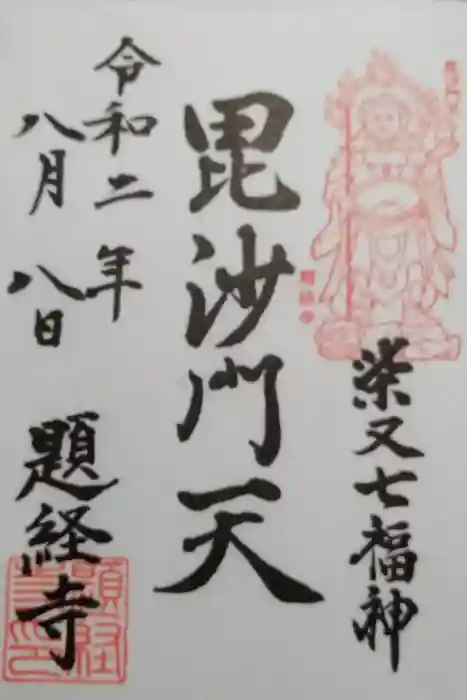 柴又七福神
毘沙門天
令和二年
八月八日
題経寺